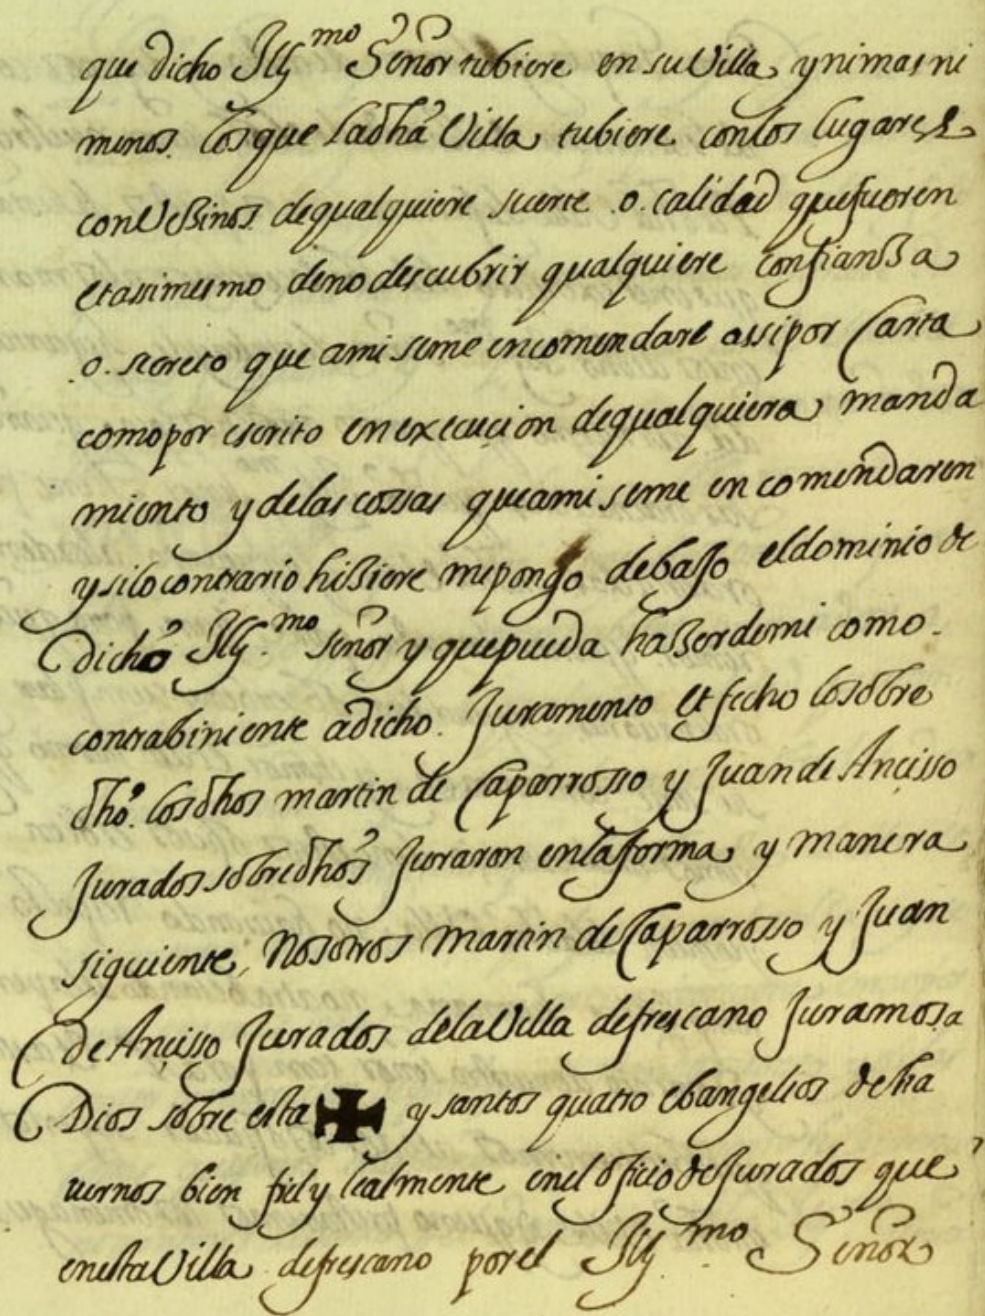 que dicho Ill.mo Señor tubiere en su Villa y ni mas ni
menos los que la dha Villa tubiere con los lugares
conVeßinos de qualquiere suerte o calidad que fueren
et assimesmo de no descubrir qualquiere confianßa
o. secreto que a mi se me encomendare assi por Carta
como por escrito en execuçion de qualquiera manda
miento y de las cossas que a mi se me encomendaren
y si lo contrario hißiere me pongo debajo el dominio de
dicho Ill.mo señor y que pueda haßer de mi como
contrabiniente a dicho. Juramento et fecho lo sobre
dho. los dhos martin de Caparrosso y Juan de Ançisso
Jurados sobredhos Juraron en la forma y manera
siguiente, Nosotros Martin de Caparrosso y Juan
de Ançisso Jurados de la Villa de frescano Juramos a
Dios sobre esta ✠ y santos quatro ebangelios de ha
uernos bien fiel y lealmente en el officio de Jurados que
en esta Villa de frescano por el Ill.mo Señor